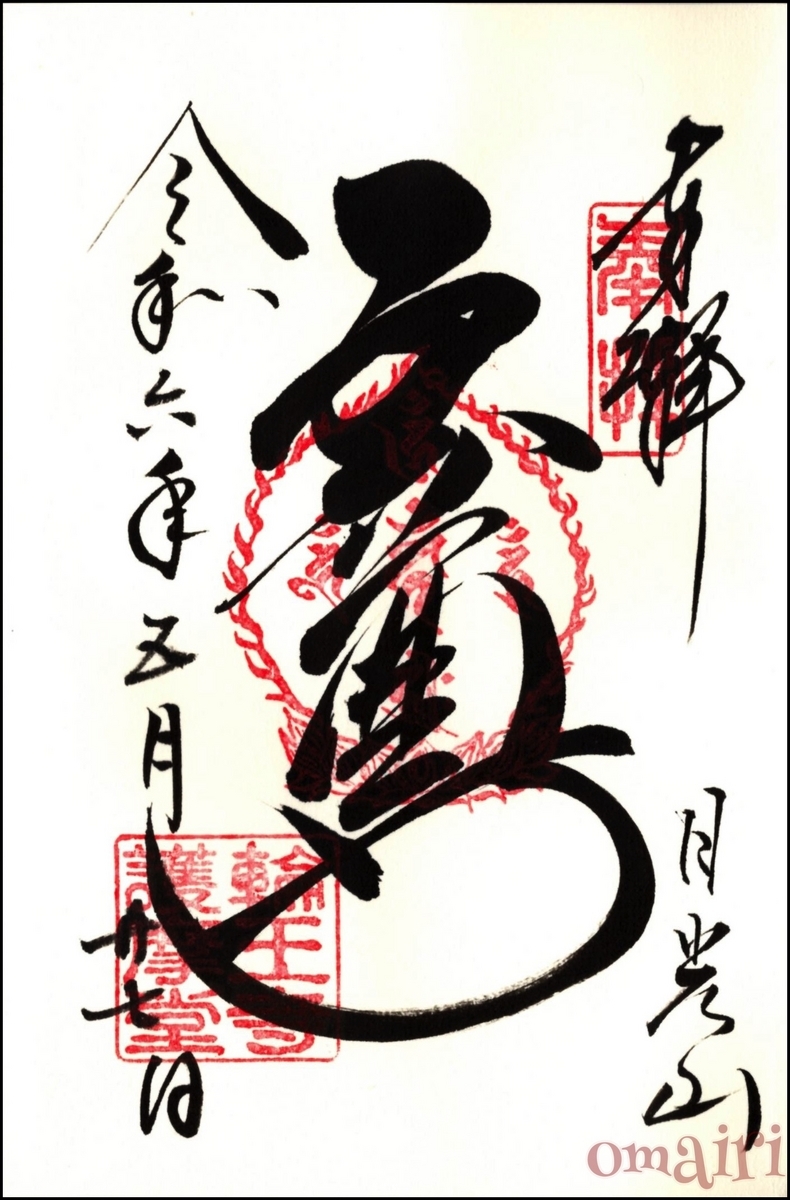 奉拜
奉拝
日光山
令和六年五月廿七日
輪王寺
護摩堂
omairi